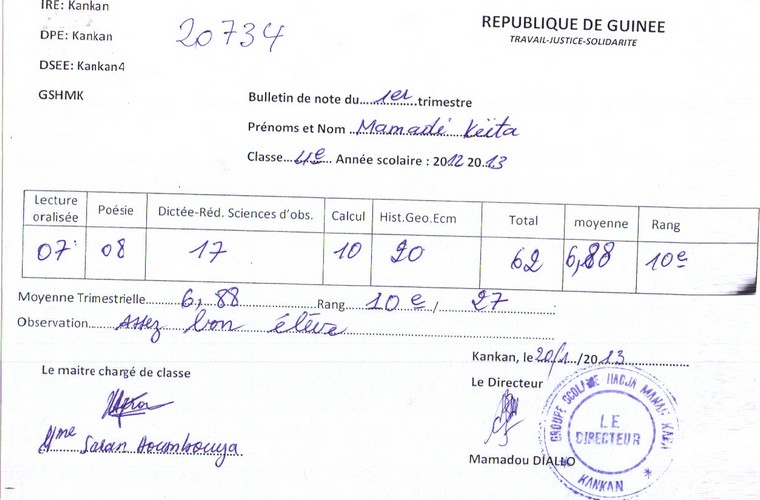 IRE: Kankan
DPE: Kankan
DSEE: Kankan4
GSHMK
20734
REPUBLIQUE DE GUINEE
TRAVAIL-JUSTICE-SOLIDARITE
Bulletin de note du.....1er.....trimestre
Prénoms et Nom ..Mamadi Keïta
Classe...4e... Année scolaire : 2012 2013
Lecture oralisée Poésie Dictée-Réd. Sciences d'obs. Calcul Hist.Geo.Ecm Total moyenne Rang
07 08 17 10 20 62 6,88 10e
Moyenne Trimestrielle.......6,88.......Rang....10e / 27
Observation.....Assez bon élève
Kankan, le 20/1/2013
Le maitre chargé de classe
Le Directeur
Mme Saran
Mamadou DIALLO
GROUPE SCOLAIRE HADJA
LE DIRECTEUR
KANKAN